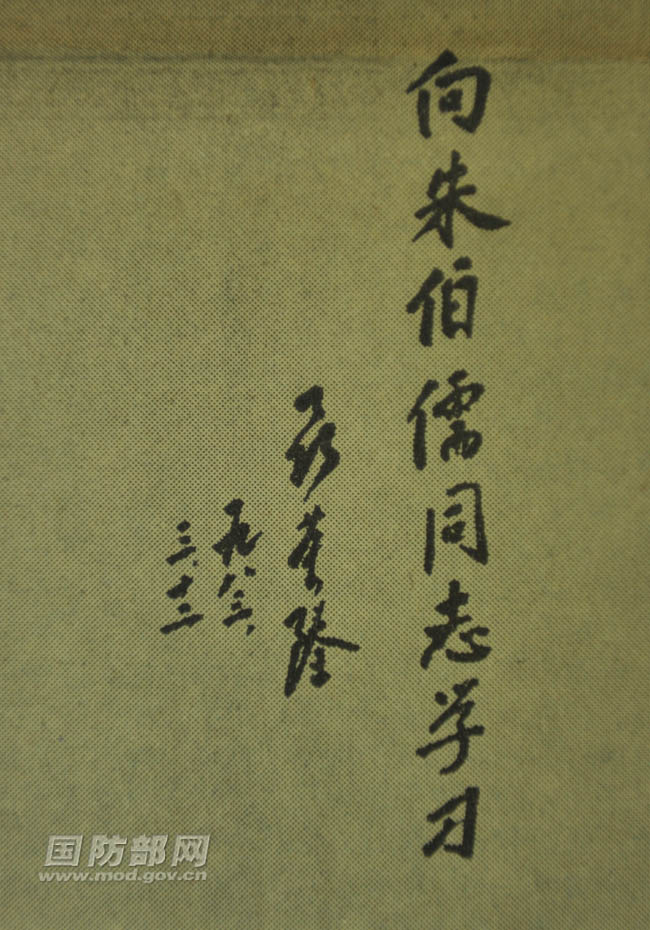 向朱伯儒同志学习
聂荣臻
一九八三、
三、十二
国防部网
www.mod.gov.cn